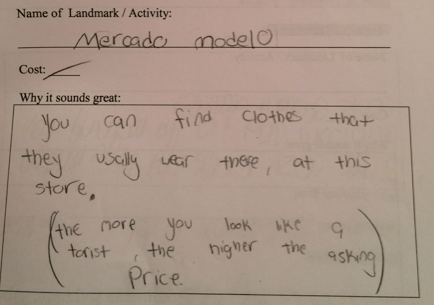 Name of Landmark / Activity:
Mercado modelo
Cost:
Why it sounds great:
You can find clothes that
they usally wear there, at this
store.
(the more you look like a
torist, the higher the asking
Price.)